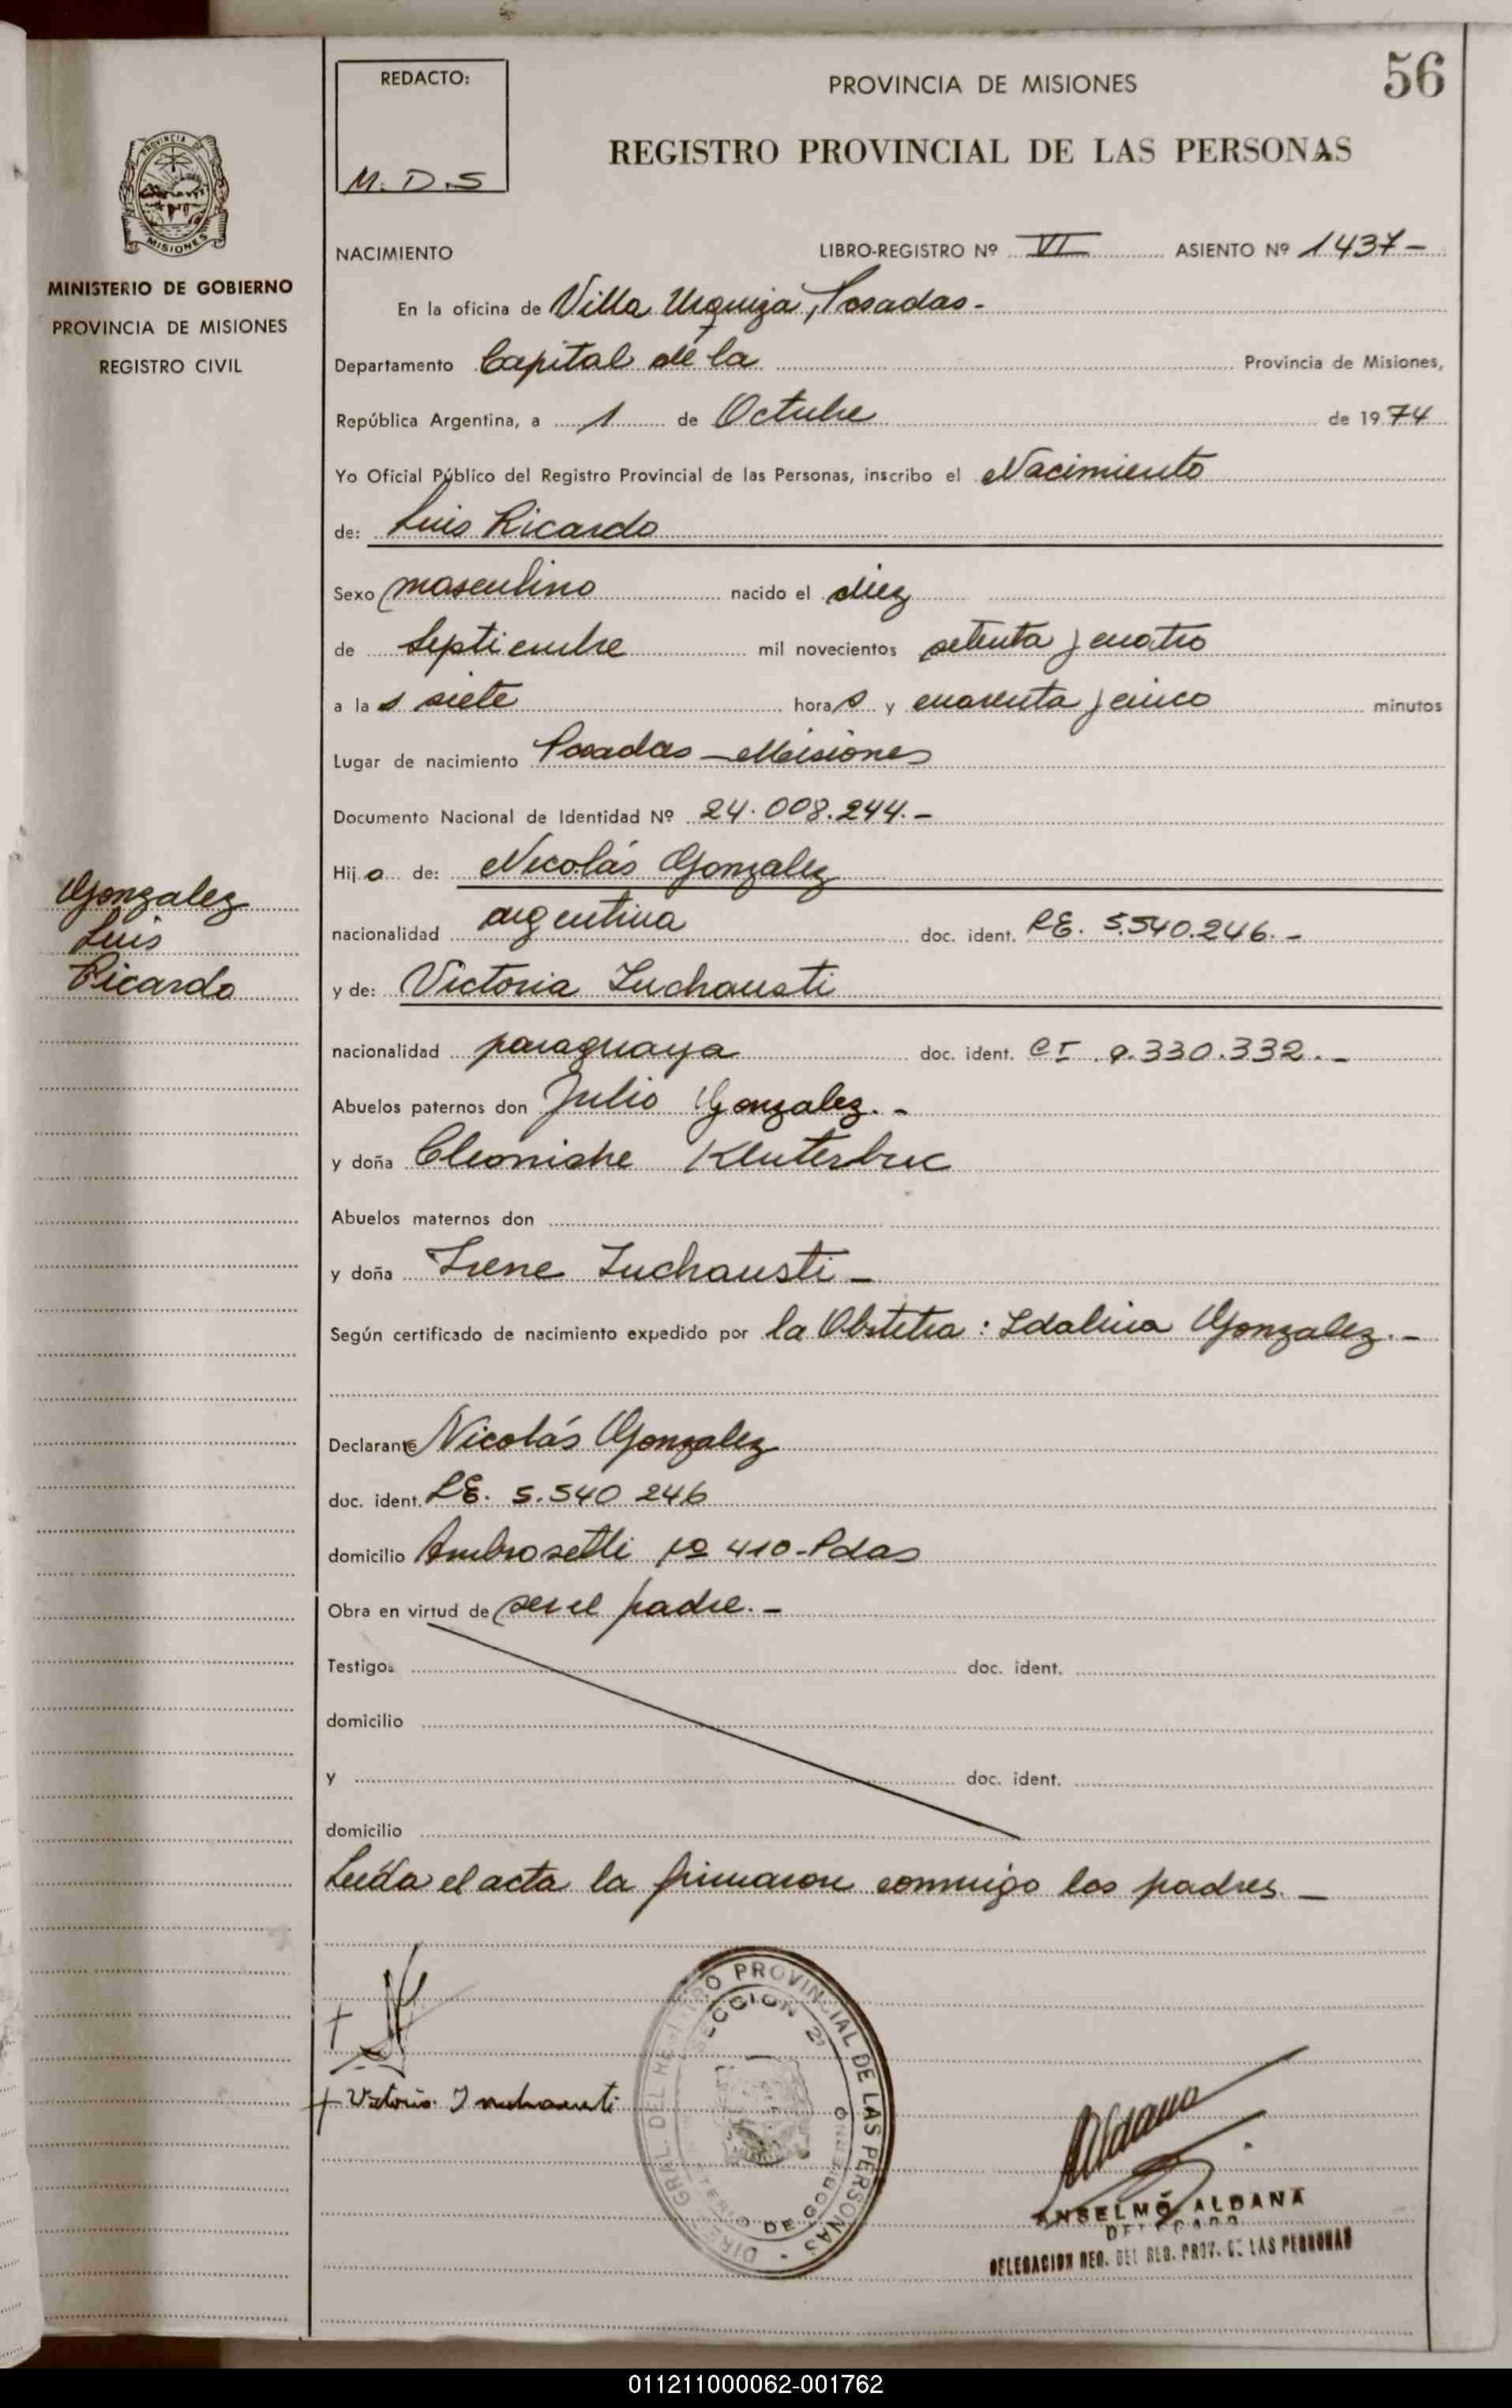 56
REDACTO:
M. D. S
PROVINCIA DE MISIONES
REGISTRO PROVINCIAL DE LAS PERSONAS
PROVINCIA DE
MISIONES
MINISTERIO DE GOBIERNO
PROVINCIA DE MISIONES
REGISTRO CIVIL
NACIMIENTO LIBRO-REGISTRO Nº VI ASIENTO Nº 1437-
En la oficina de Villa Urquiza, Posadas-
Departamento Capital de la Provincia de Misiones,
República Argentina, a 1 de Octubre de 1974
Yo Oficial Público del Registro Provincial de las Personas, inscribo el Nacimiento
de: Luis Ricardo
Sexo masculino nacido el diez
de Septiembre mil novecientos setenta y cuatro
a las siete horas y cuarenta y cinco minutos
Lugar de nacimiento Posadas - Misiones
Documento Nacional de Identidad Nº 24.008.244.-
Hijo de: Nicolás Gonzalez
Gonzalez
Luis
Ricardo
nacionalidad argentina doc. ident. LE. 5.540.246.-
y de: Victoria Inchausti
nacionalidad paraguaya doc. ident. CI 330.332.-
Abuelos paternos don Julio Gonzalez.-
y doña Cleonishe Kluterbuc
Abuelos maternos don
y doña Irene Inchausti-
Según certificado de nacimiento expedido por la Obstetra: Idalina Gonzalez.-
Declarante Nicolás Gonzalez
doc. ident. LE. 5.540 246
domicilio Ambrosetti Nº 410-Pdas
Obra en virtud de ser el padre.-
Testigos doc. ident.
domicilio
y doc. ident.
domicilio
Leída el acta la firmaron conmigo los padres.-
Victoria Inchausti
DIREC. GRAL. DEL REGISTRO PROVINCIAL DE LAS PERSONAS -
SECCION 2ª
MINISTERIO DE GOBIERNO
Aldana
ANSELMO ALDANA
DELEGADO
DELEGACION REG. DEL REG. PROV. DE LAS PERSONAS
011211000062-001762